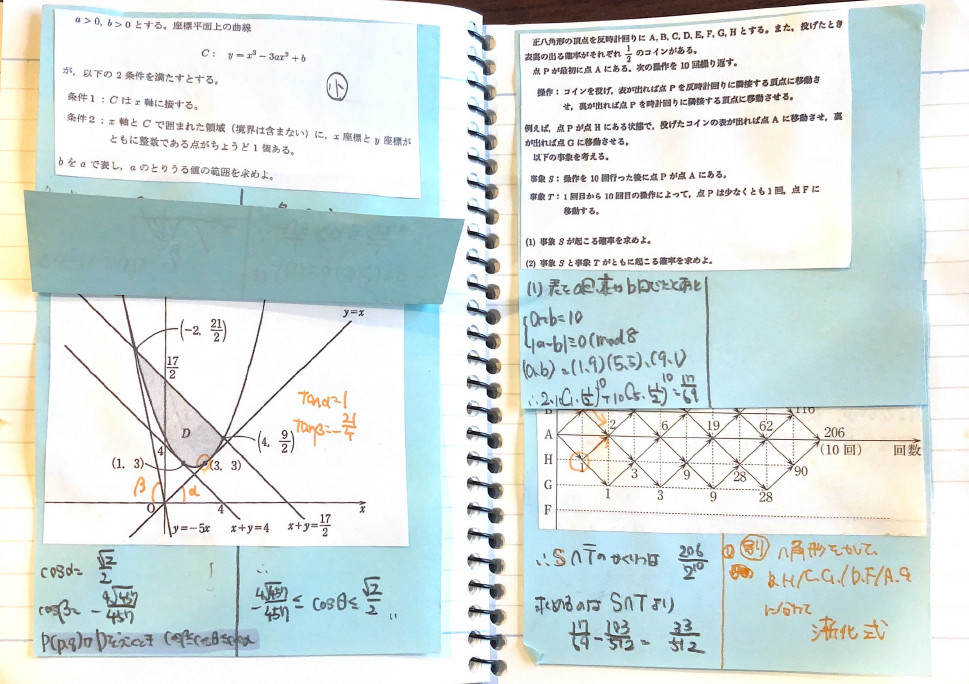 a > 0, b > 0 とする。座標平面上の曲線
C: y = x³ − 3ax² + b
が、以下の2条件を満たすとする。
条件1：Cはx軸に接する。
条件2：x軸とCで囲まれた領域（境界は含まない）に，x座標とy座標が
ともに整数である点がちょうど1個ある。
bをaで表し，aのとりうる値の範囲を求めよ。
y=x
(−2, 21/2)
17/2
tanα=1
tanβ=−21/4
D
(4, 9/2)
4
(1, 3)
(3, 3)
β
α
O
4
x
y=−5x
x+y=4
x+y=17/2
cosα= √2/2
cosβ= −4√457/457
∴
−4√457/457 ≤ cosθ ≤ √2/2
正八角形の頂点を反時計回りに A, B, C, D, E, F, G, H とする。また，投げたとき
表裏の出る確率がそれぞれ 1/2 のコインがある。
点Pが最初に点Aにある。次の操作を10回繰り返す。
操作：コインを投げ，表が出れば点Pを反時計回りに隣接する頂点に移動さ
せ，裏が出れば点Pを時計回りに隣接する頂点に移動させる。
例えば，点Pが点Hにある状態で，投げたコインの表が出れば点Aに移動させ，裏
が出れば点Gに移動させる。
以下の事象を考える。
事象S：操作を10回行った後に点Pが点Aにある。
事象T：1回目から10回目の操作によって，点Pは少なくとも1回，点Fに
移動する。
(1) 事象Sが起こる確率を求めよ。
(2) 事象Sと事象Tがともに起こる確率を求めよ。
a+b=10
|a−b|≡0 (mod 8
(a,b) = (1,9) (5,5), (9,1)
∴ 2·₁₀C₁·(1/2)¹⁰+₁₀C₅·(1/2)¹⁰=17/64
B 116
A 2 6 19 62 206
(10回) 回数
H 1 3 9 28 90
G 1 3 9 28
F
∴ S∩T̄の かくりつは 206/2¹⁰
求めるのは S∩Tより
17/64 − 103/512 = 33/512
別
八角形をかいて、
に分けて
漸化式